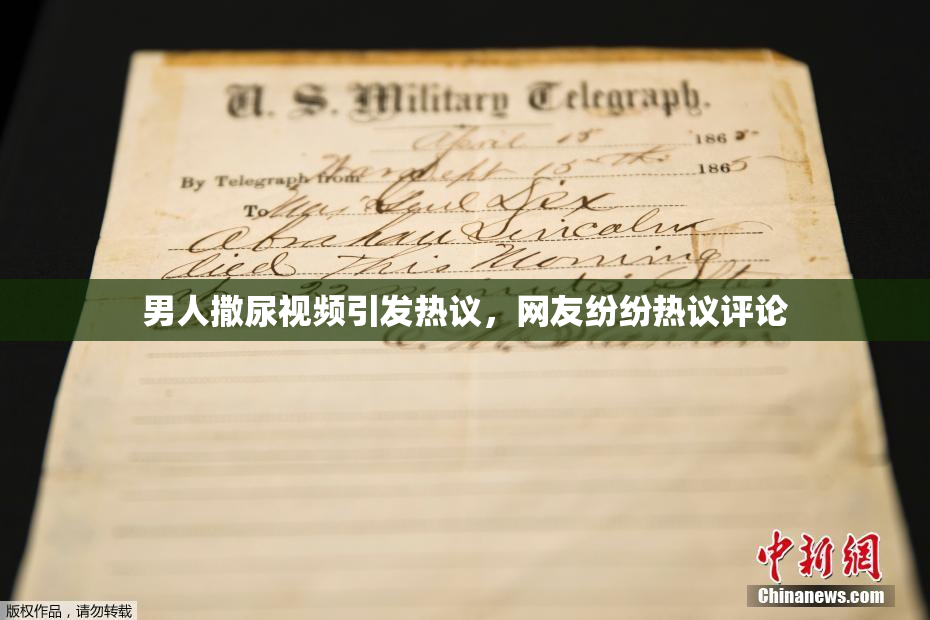 U. S. Military Telegraph.
April 15 1865
By Telegraph from War Dept 15th 1865
To Maj Genl Dix
Abraham Lincoln
died This Morning
22 minutes after
男人撒尿视频引发热议，网友纷纷热议评论
E. M. Stanton
中新網
Chinanews.com
版权作品，请勿转载